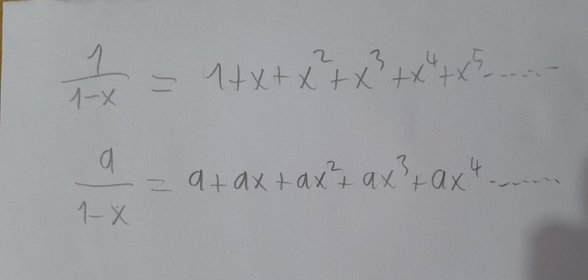 1/(1-x) = 1+x+x²+x³+x⁴+x⁵-------
a/(1-x) = a+ax+ax²+ax³+ax⁴-------